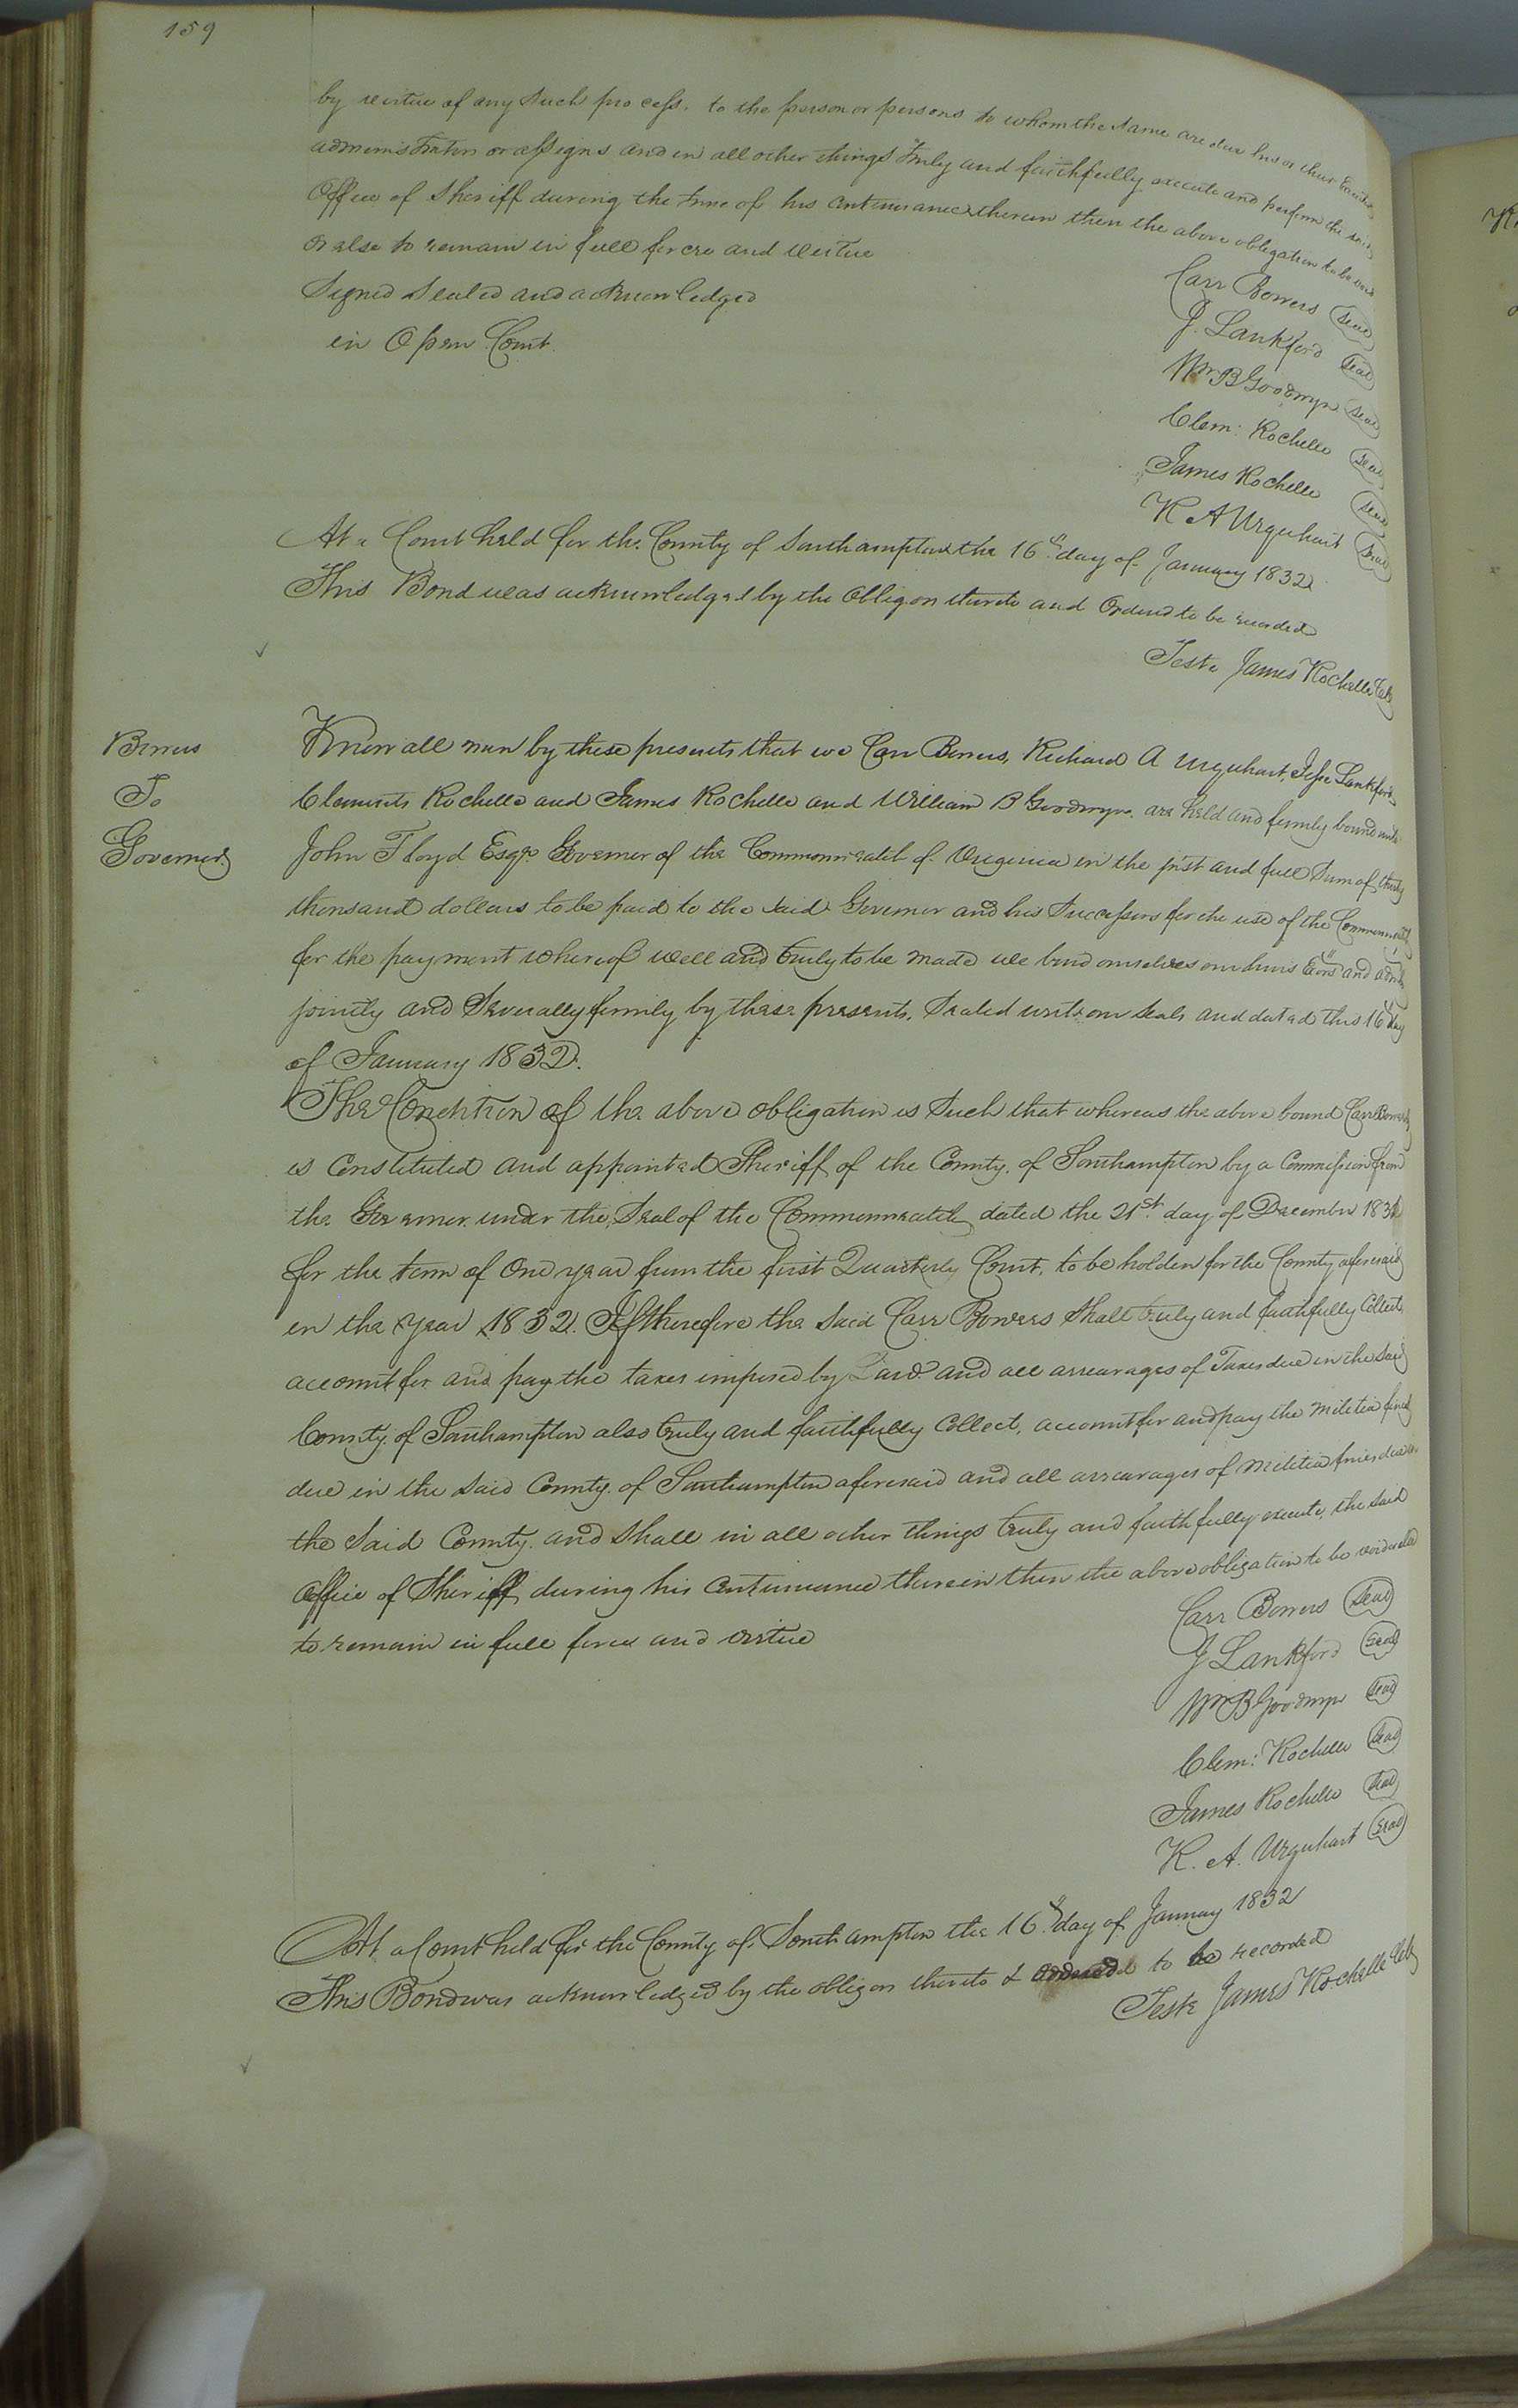 159
by virtue of any Such process, to the person or persons to whom the Same are due his or their
administrators or assigns and in all other things truly and faithfully execute and perform the said
Office of Sheriff during the time of his Continuance therein then the above obligation to be void
or else to remain in full force and virtue
Signed Sealed and acknowledged
in Open Court.
Carr Bowers Seal
J. Lankford Seal
Wm B Goodwyn Seal
Clem: Rochelle Seal
James Rochelle Seal
R A Urquhart Seal
At a Court held for the County of Southampton the 16th day of January 1832
This Bond was acknowledged by the Obligors thereto and Ordered to be recorded
Teste James Rochelle Clk
Bowers
To
Governor
Know all men by these presents that we Carr Bowers, Richard A Urquhart, Jesse Lankford
Clements Rochelle and James Rochelle and William B Goodwyn are held and firmly bound unto
John Floyd Esqr. Governor of the Commonwealth of Virginia in the just and full Sum of thirty
thousand dollars to be paid to the Said Governor and his Successors for the use of the Commonwealth
for the payment whereof well and truly to be made we bind ourselves our heirs Exors and admrs
jointly and Severally firmly by these presents. Sealed with our Seals and dated this 16th day
of January 1832.
The Condition of the above obligation is Such that whereas the above bound Carr Bowers
is Constituted and appointed Sheriff of the County of Southampton by a Commission from
the Governor under the Seal of the Commonwealth dated the 21st day of December 1831
for the term of One year from the first Quarterly Court, to be holden for the County aforesaid
in the year 1832. If therefore the Said Carr Bowers Shall truly and faithfully Collect,
account for and pay the taxes imposed by Law and all arrearages of Taxes due in the Said
County of Southampton also truly and faithfully Collect, account for and pay the militia fines
due in the Said County of Southampton aforesaid and all arrearages of militia fines due in
the Said County and Shall in all other things truly and faithfully execute, the Said
office of Sheriff during his Continuance therein then the above obligation to be void or else
to remain in full force and virtue
Carr Bowers Seal
J Lankford Seal
Wm B Goodwyn Seal
Clem: Rochelle Seal
James Rochelle Seal
R. A. Urquhart Seal
At a Court held for the County of Southampton the 16th day of January 1832
This Bond was acknowledged by the obligors thereto & ordered to be recorded
Teste James Rochelle Clk